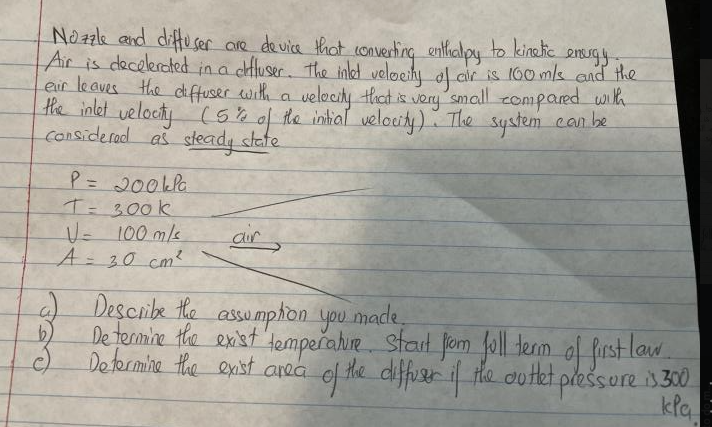 Nozzle and diffuser are device that converting enthalpy to kinetic energy.
Air is decelerated in a diffuser. The inlet velocity of air is 100 m/s and the
air leaves the diffuser with a velocity that is very small compared with
the inlet velocity (5% of the initial velocity). The system can be
considered as steady state
P = 200 kPa
T = 300 K
V = 100 m/s
air
A = 30 cm²
a) Describe the assumption you made.
b) Determine the exist temperature. Start from full term of first law.
c) Determine the exist area of the diffuser if the outlet pressure is 300
kPa.